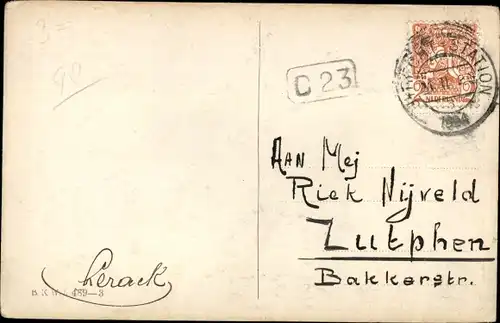 3=
40
C 23
STATION
AAN Mej
Riek Nijveld
Zutphen
Bakkerstr.
B.K.W.I. 489-3